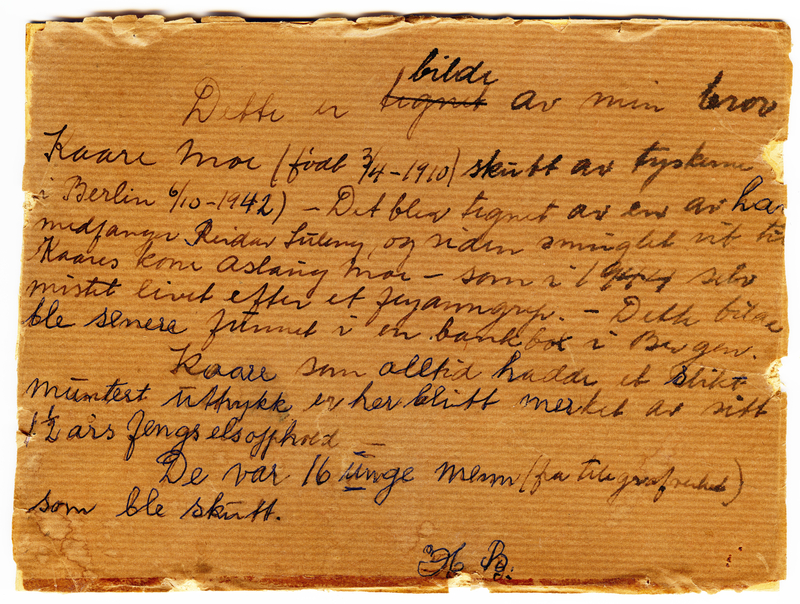 Dette er tegnet bilde av min bror
Kaare Moe (født 3/4-1910) skutt av tyskerne
i Berlin 6/10-1942) - Det blev tegnet av en av ha
medfanger Reidar, og siden smuglet ut til
Kaares kone Aslaug Moe - som i 1944 selv
mistet livet efter et flyanngrep. - Dette bildet
ble senere funnet i en bankbox i Bergen.
Kaare som alltid hadde et slikt
muntert uttrykk, er her blitt merket av sitt
1 1/2 års fengselsopphold -
De var 16 unge menn (fra telegrafverket)
som ble skutt.